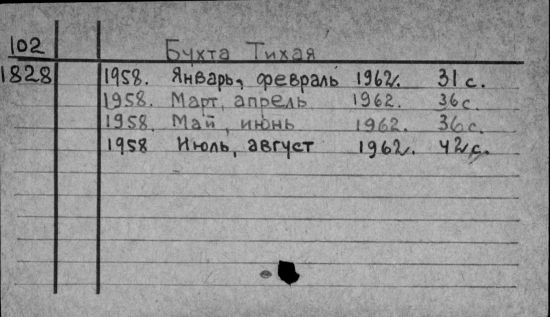 102 Бухта Тихая
1828 1958. Январь, февраль 1962г. 31 с.
1958. Март, апрель 1962. 36 с.
1958. Май, июнь 1962. 36 с.
1958 Июль, август 1962. 42 с.